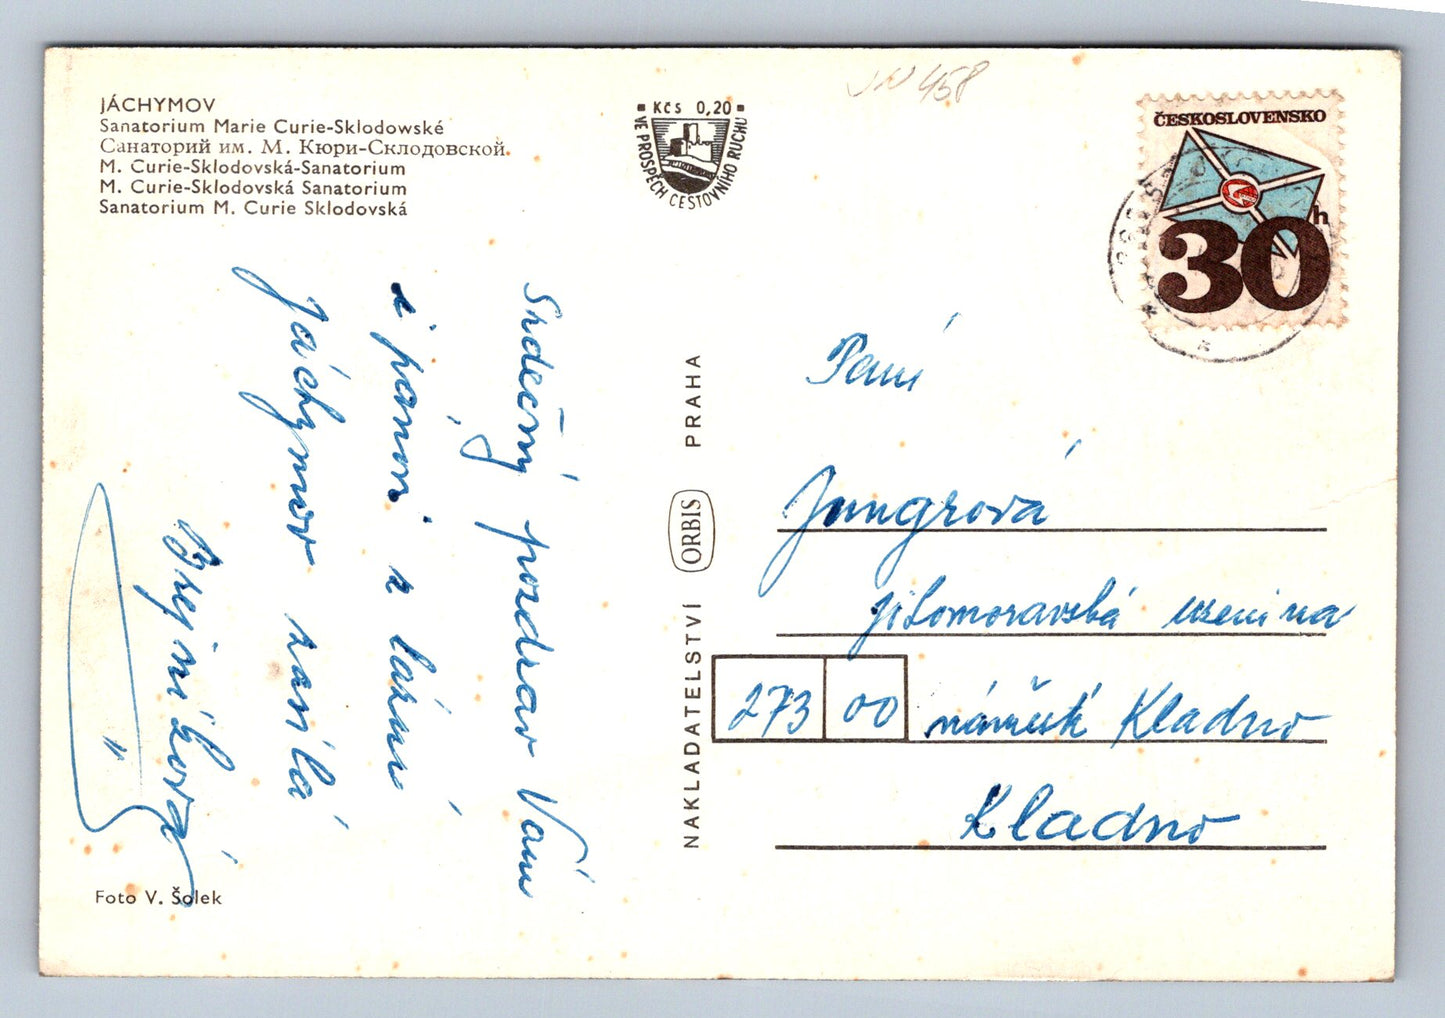 JÁCHYMOV
Sanatorium Marie Curie-Sklodowské
Санаторий им. М. Кюри-Склодовской.
M. Curie-Sklodovská-Sanatorium
M. Curie-Sklodovská Sanatorium
Sanatorium M. Curie Sklodovská
Kčs 0,20
VE PROSPĚCH CESTOVNÍHO RUCHU
458
ČESKOSLOVENSKO
30 h
Srdečný pozdrav Vám
i paní z lázní
Jáchymov zasílá
Foto V. Šolek
NAKLADATELSTVÍ ORBIS PRAHA
Paní
Jungrová
273 00 Kladno
Kladno